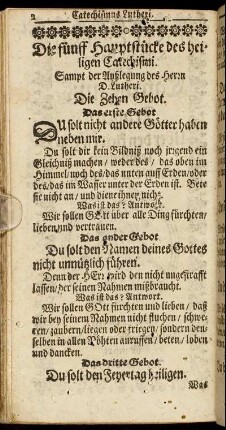 2 Catechismus Lutheri.
Die fünff Hauptstücke des hei-
ligen Catechismi.
Sampt der Außlegung des Herrn
D. Lutheri.
Die Zehen Gebot.
Das erste Gebot
DU solt nicht andere Götter haben
neben mir.
Du solt dir kein Bildniß noch irgend ein
Gleichniß machen / weder des / das oben im
Himmel / noch des / das unten auff Erden / oder
des / das im Wasser unter der Erden ist. Bete
sie nicht an / und diene ihnen nicht.
Was ist das? Antwort.
Wir sollen GOtt über alle Ding fürchten /
lieben und vertrauen.
Das ander Gebot
Du solt den Namen deines Gottes
nicht unnützlich führen.
Denn der HErr wird den nicht ungestrafft
lassen / der seinen Nahmen mißbraucht.
Was ist das? Antwort.
Wir sollen GOtt fürchten und lieben / daß
wir bey seinem Nahmen nicht fluchen / schwe-
ren / zaubern / liegen oder triegen / sondern den-
selben in allen Nöhten anruffen / beten / loben
und dancken.
Das dritte Gebot.
Du solt den Feyertag heiligen.
Was